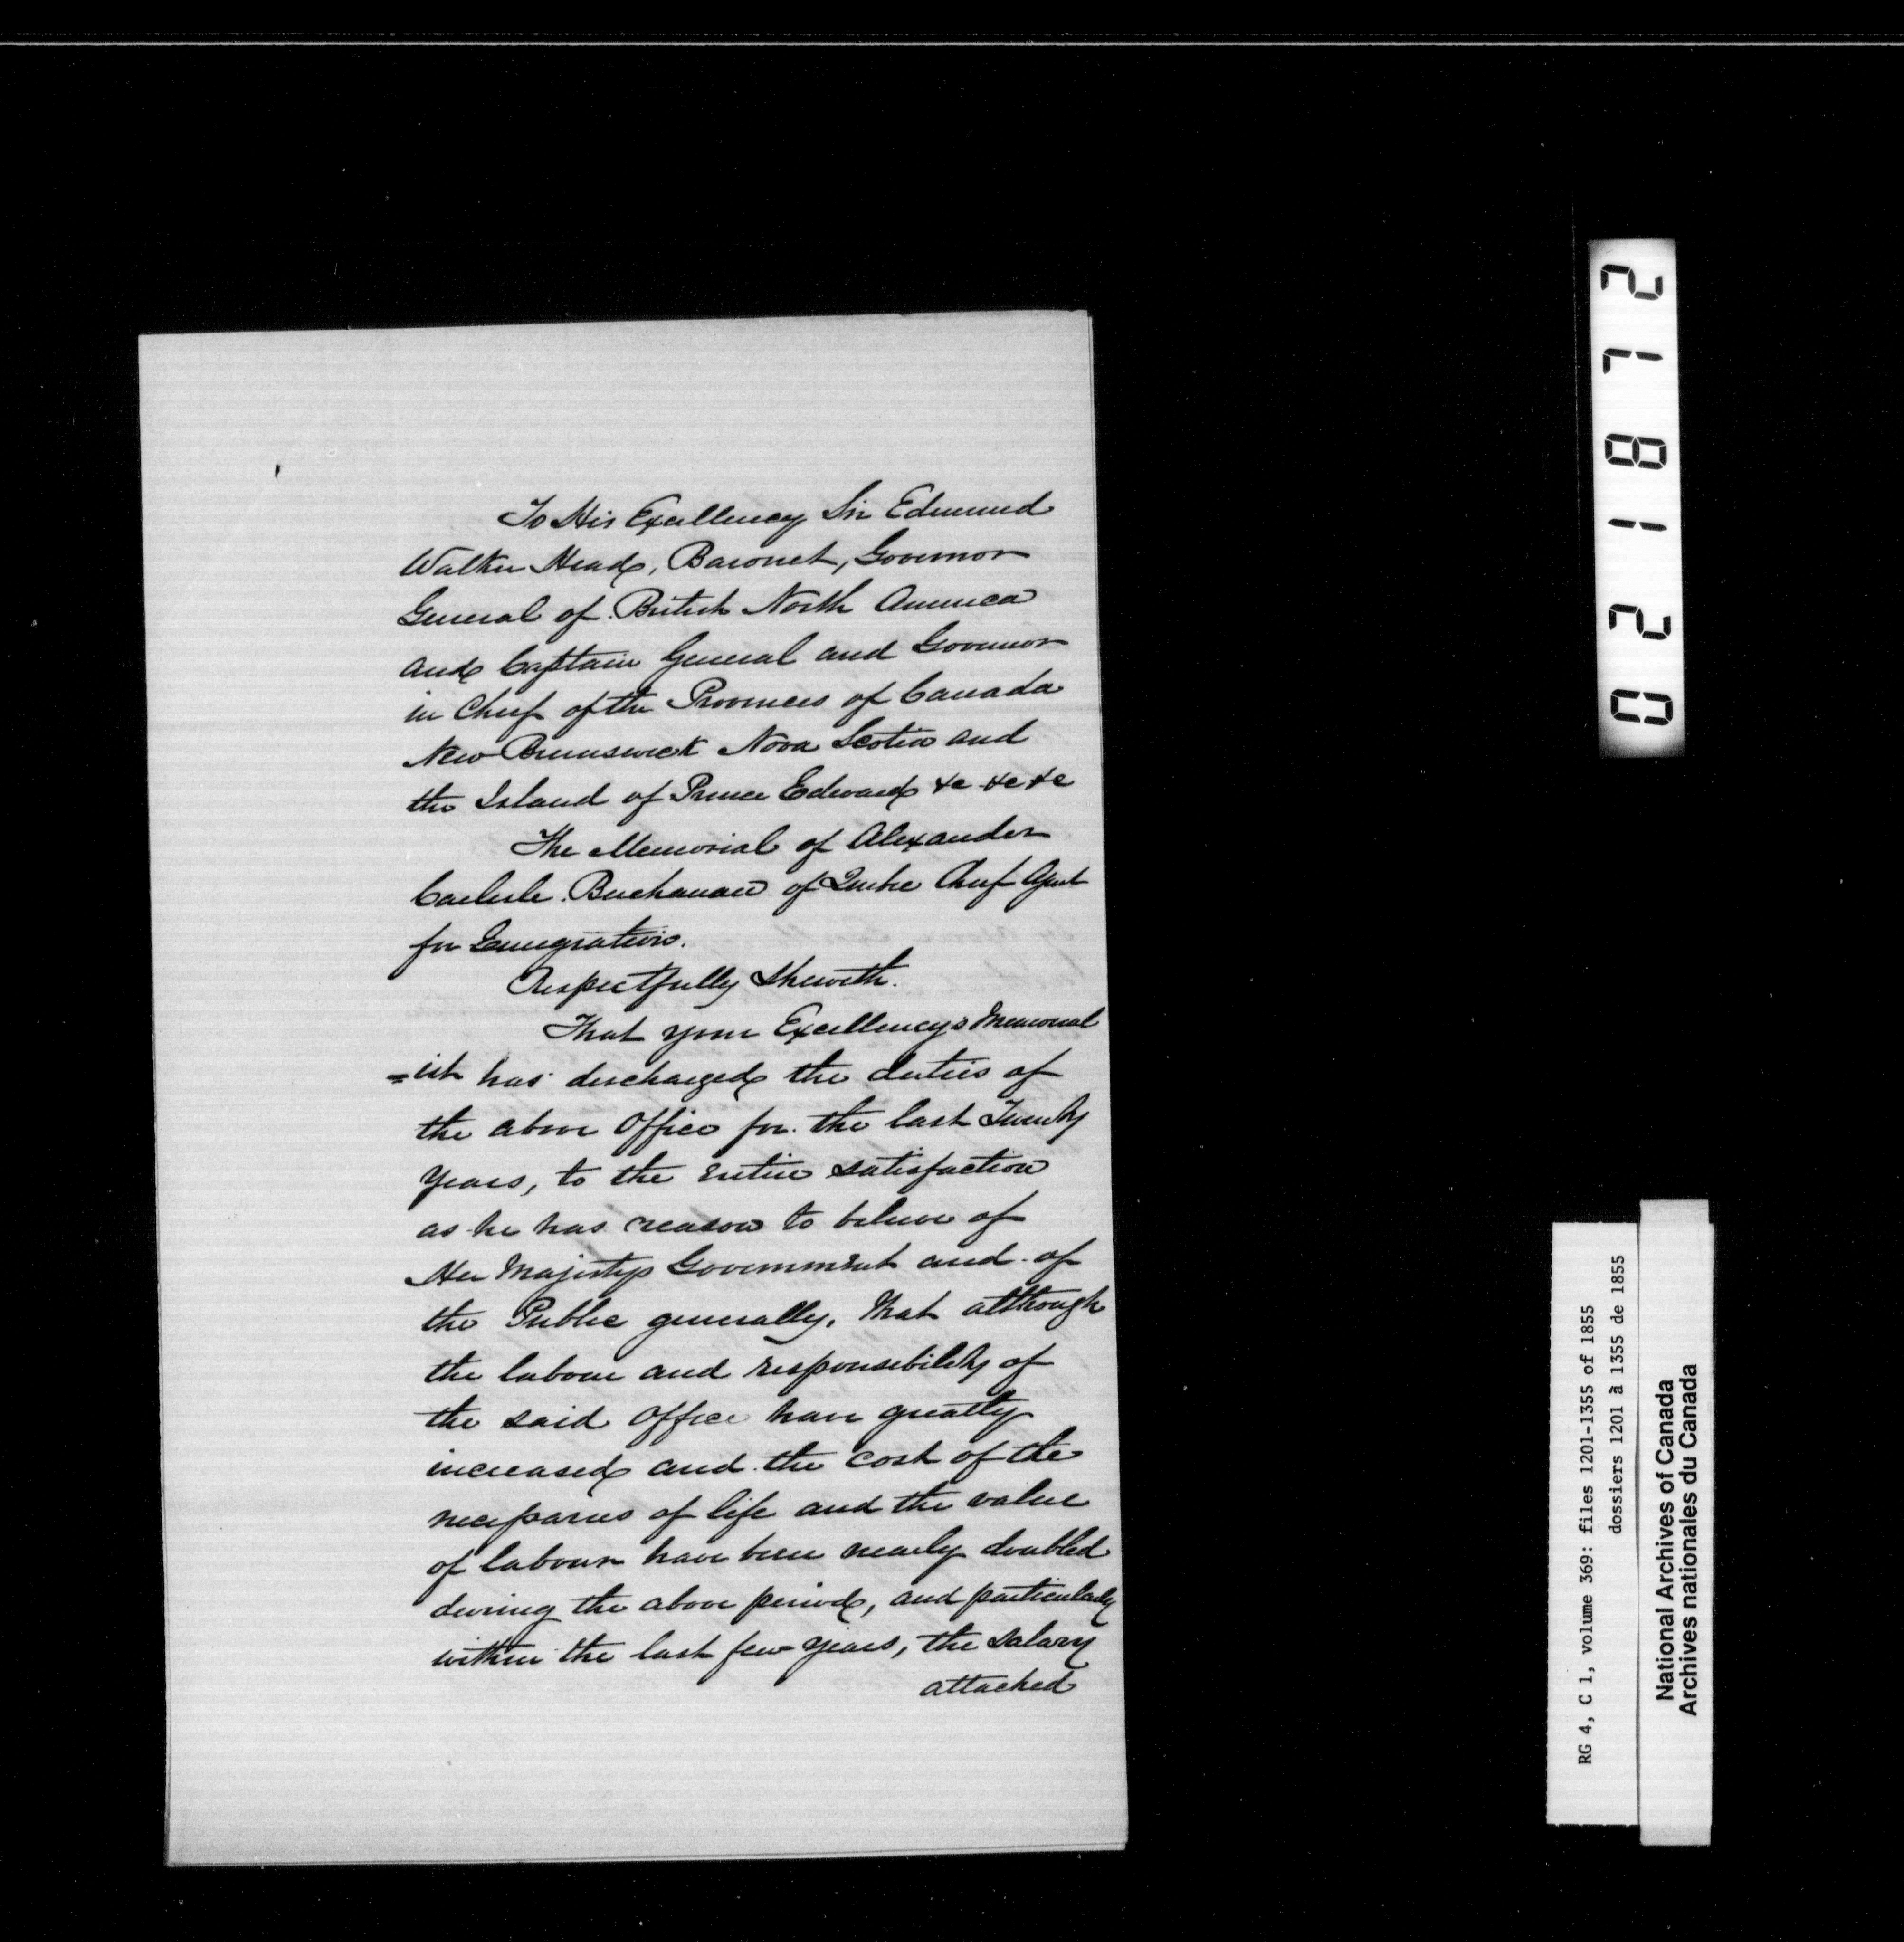 To His Excellency Sir Edmund
Walker Head, Baronet, Governor
General of British North America
and Captain General and Governor
in Chief of the Provinces of Canada
New Brunswick Nova Scotia and
the Island of Prince Edward &c &c &c
The Memorial of Alexander
Carlisle Buchanan of Quebec Chief Agent
for Emigration.
Respectfully Sheweth.
That your Excellencys Memorial
=ist has discharged the duties of
the above Office for the last Twenty
Years, to the entire satisfaction
as he has reason to believe of
Her Majestys Government and of
the Public generally, that although
the labour and responsibility of
the said Office have greatly
increased and the cost of the
necessaries of life and the value
of labour have been nearly doubled
during the above period, and particularly
within the last few years, the Salary
attached
021872
RG 4, C 1, volume 369: files 1201-1355 of 1855
dossiers 1201 à 1355 de 1855
National Archives of Canada
Archives nationales du Canada